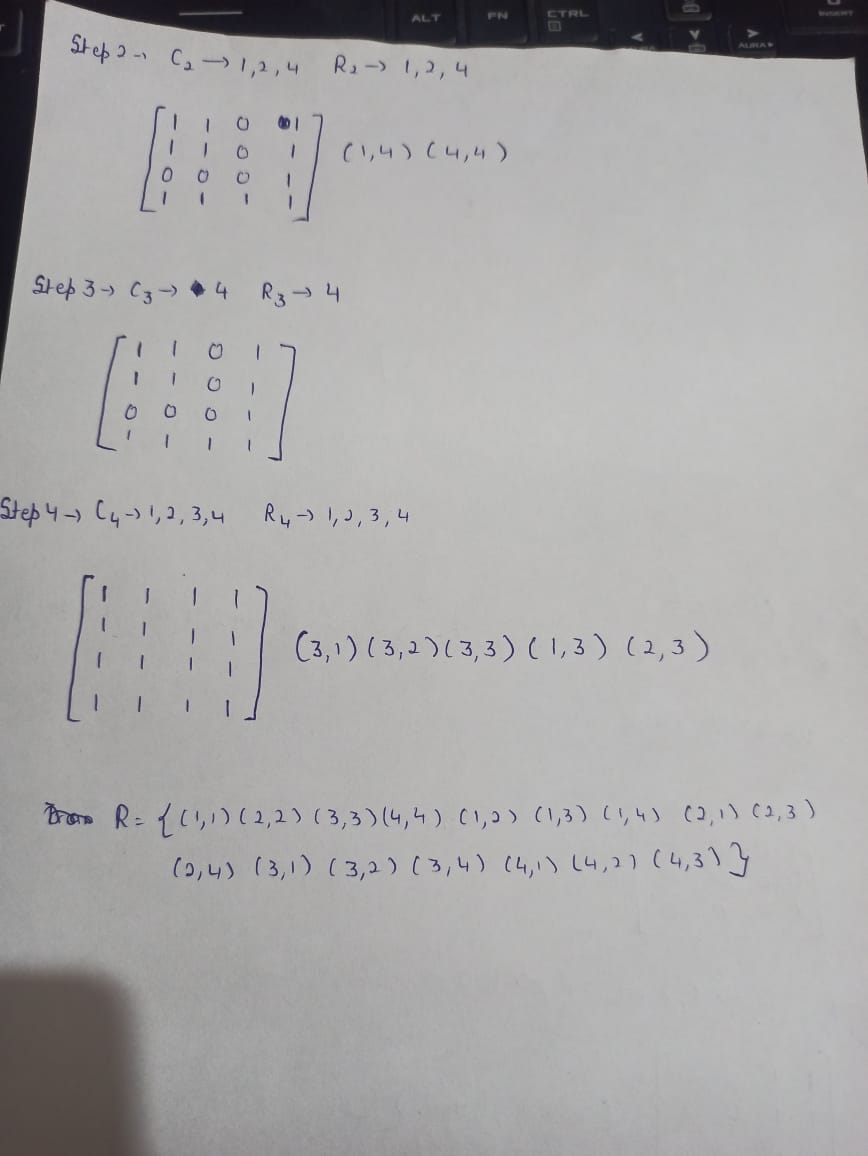 ALT FN CTRL INSERT
AURA
Step 2 → C₂ → 1,2,4 R₂ → 1,2,4
1 1 0 1
1 1 0 1 (1,4) (4,4)
0 0 0 1
1 1 1 1
Step 3 → C₃ → 4 R₃ → 4
1 1 0 1
1 1 0 1
0 0 0 1
1 1 1 1
Step 4 → C₄ → 1,2,3,4 R₄ → 1,2,3,4
1 1 1 1
1 1 1 1
1 1 1 1 (3,1) (3,2) (3,3) (1,3) (2,3)
1 1 1 1
R = {(1,1) (2,2) (3,3) (4,4) (1,2) (1,3) (1,4) (2,1) (2,3)
(2,4) (3,1) (3,2) (3,4) (4,1) (4,2) (4,3)}